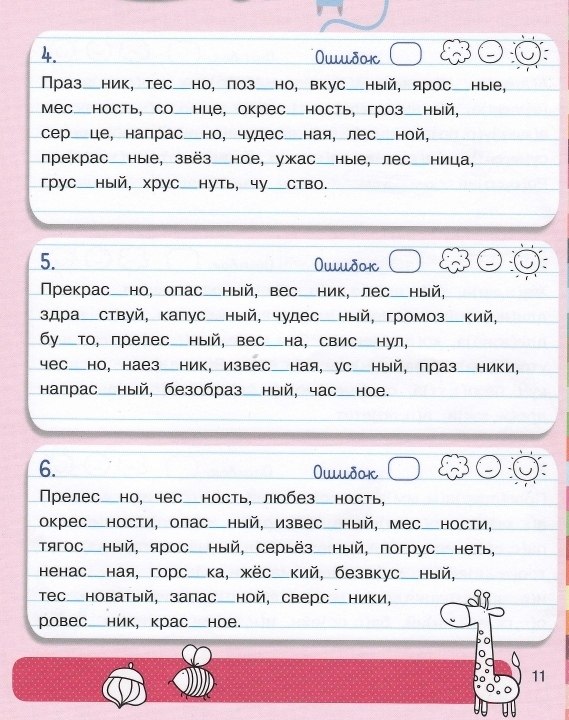 4. Ошибок
Праз__ник, тес__но, поз__но, вкус__ный, ярос__ные,
мес__ность, со__нце, окрес__ность, гроз__ный,
сер__це, напрас__но, чудес__ная, лес__ной,
прекрас__ные, звёз__ное, ужас__ные, лес__ница,
грус__ный, хрус__нуть, чу__ство.
5. Ошибок
Прекрас__но, опас__ный, вес__ник, лес__ный,
здра__ствуй, капус__ный, чудес__ный, громоз__кий,
бу__то, прелес__ный, вес__на, свис__нул,
чес__но, наез__ник, извес__ная, ус__ный, праз__ники,
напрас__ный, безобраз__ный, час__ное.
6. Ошибок
Прелес__но, чес__ность, любез__ность,
окрес__ности, опас__ный, извес__ный, мес__ности,
тягос__ный, ярос__ный, серьёз__ный, погрус__неть,
ненас__ная, горс__ка, жёс__кий, безвкус__ный,
тес__новатый, запас__ной, сверс__ники,
ровес__ник, крас__ное.
11